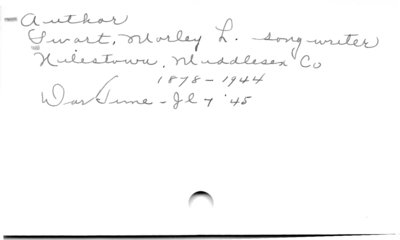 Author
Swart, Morley L. song-writer
Nilestown, Middlesex Co
1878 - 1944
War Time - Jl 7 '45